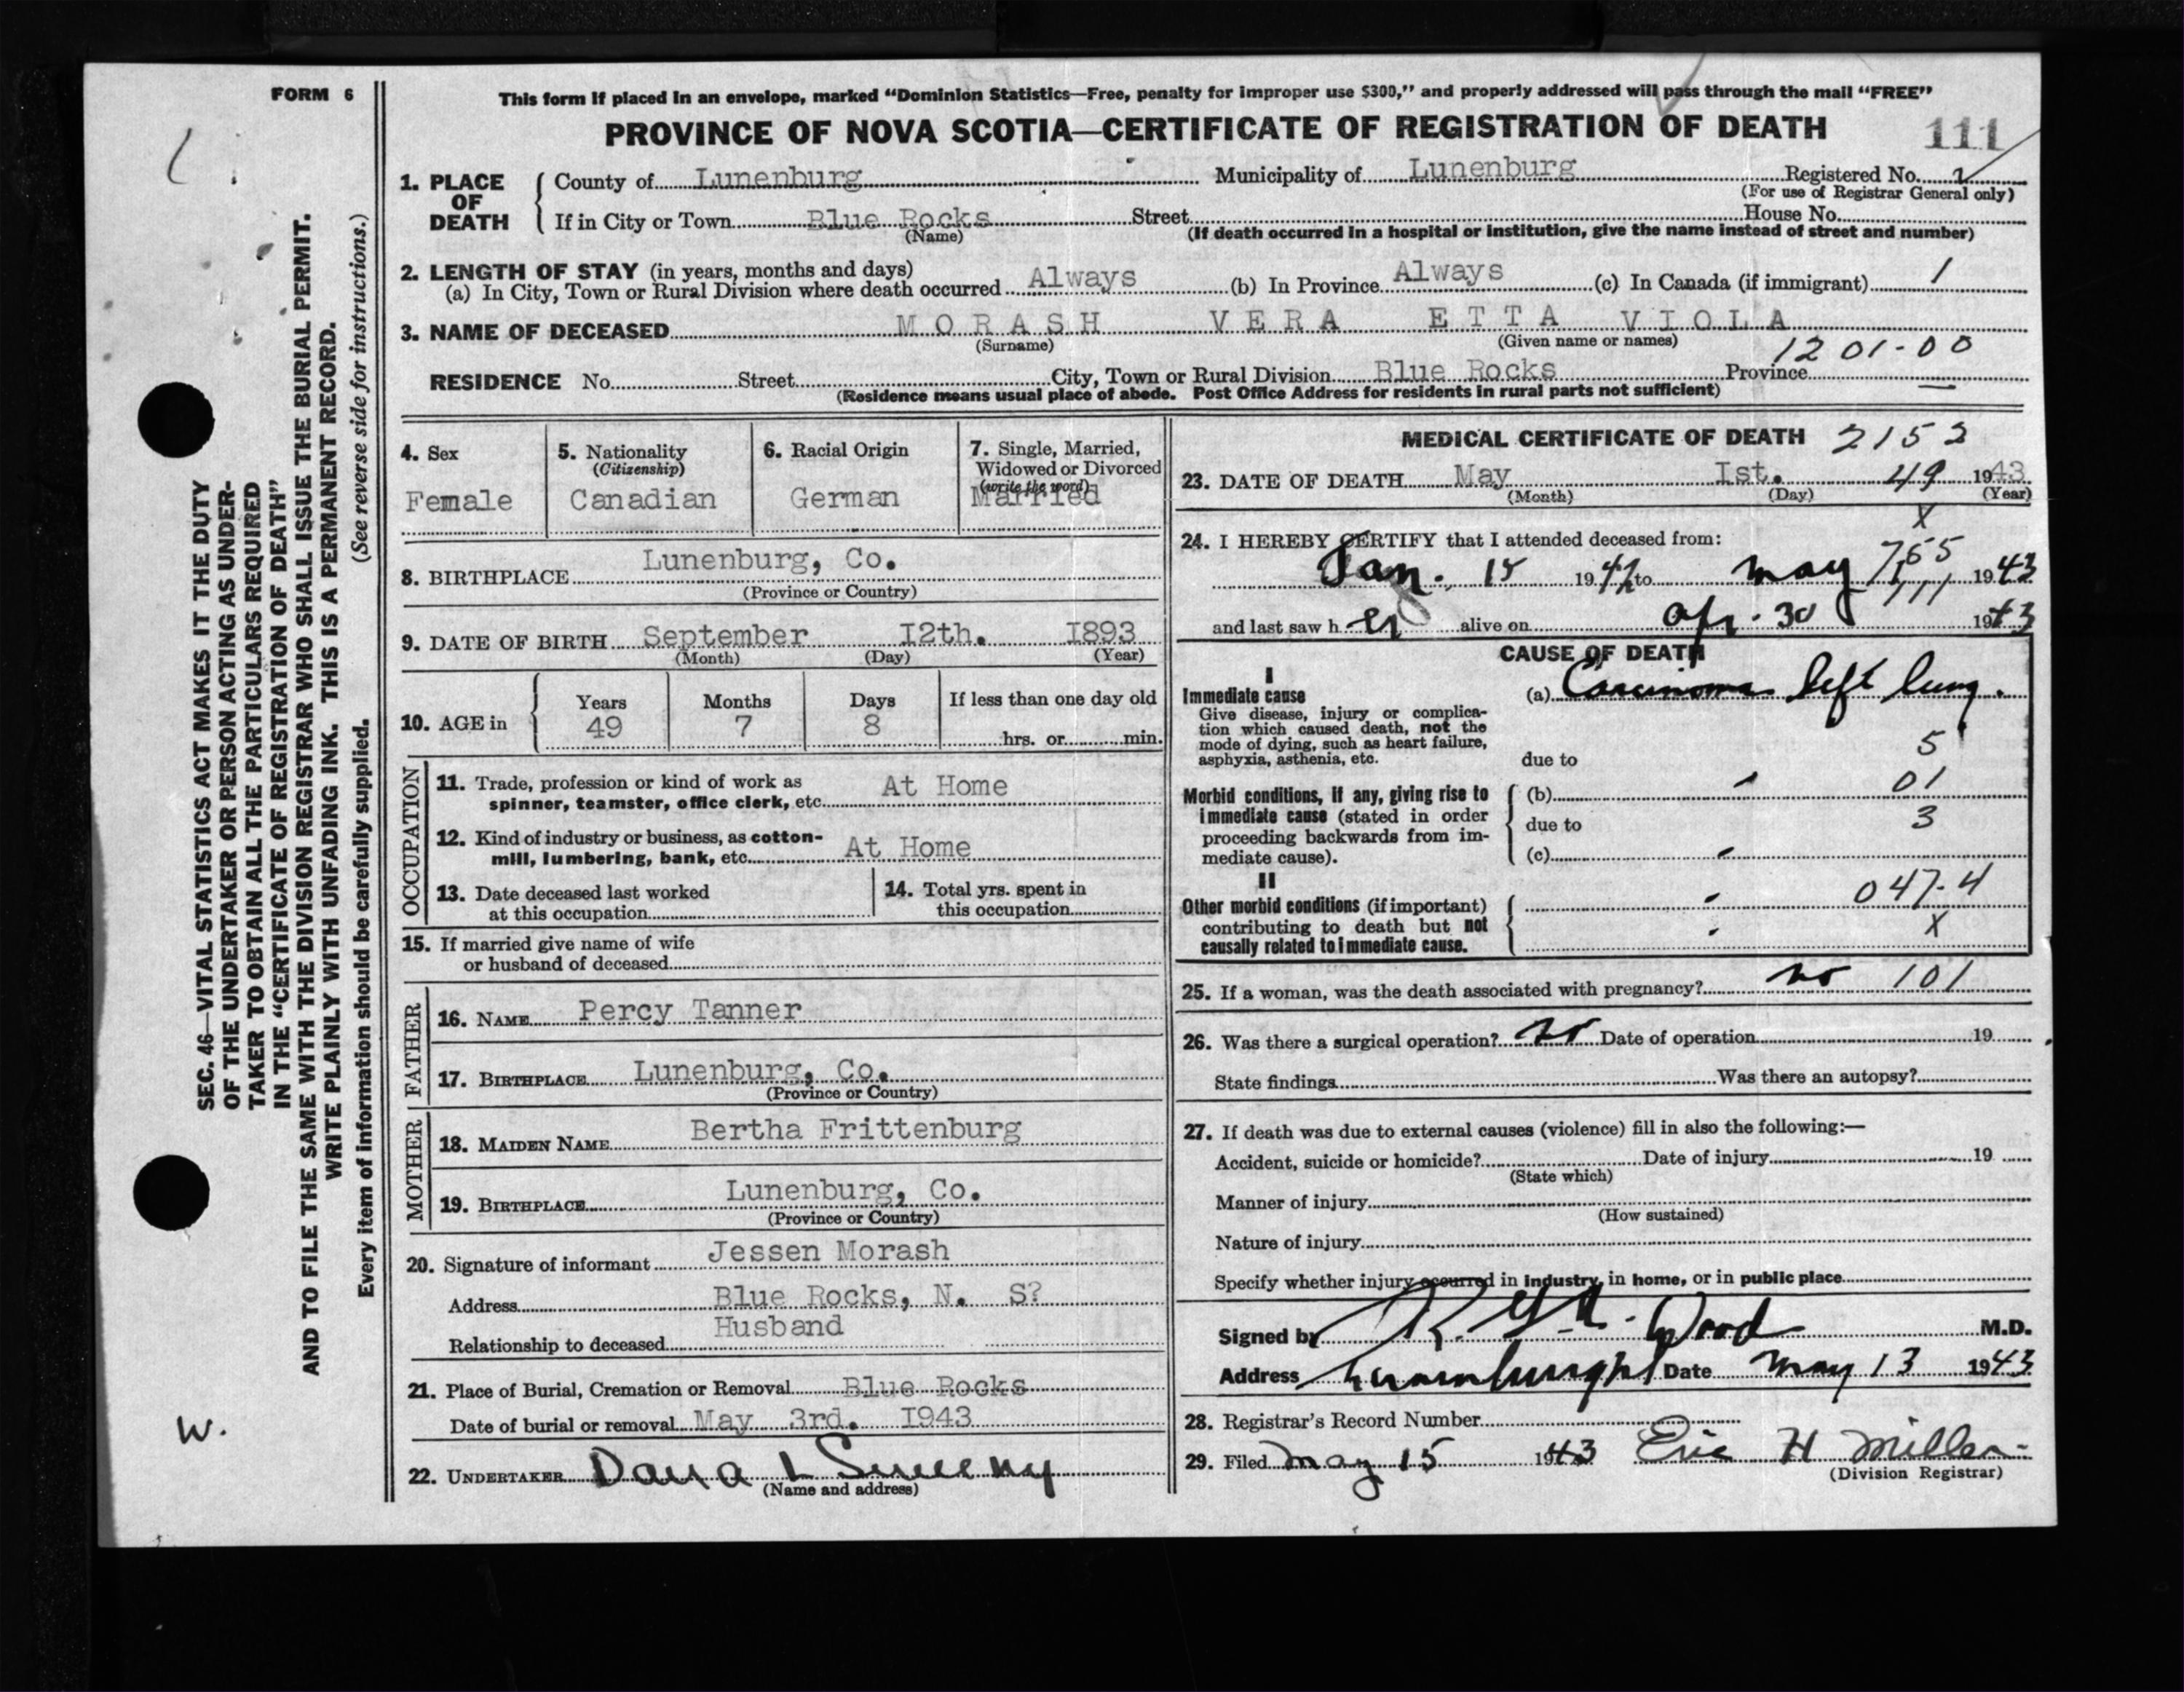 FORM 6
This form if placed in an envelope, marked “Dominion Statistics—Free, penalty for improper use $300,” and properly addressed will pass through the mail “FREE”
PROVINCE OF NOVA SCOTIA—CERTIFICATE OF REGISTRATION OF DEATH
111
1. PLACE OF DEATH
County of Lunenburg Municipality of Lunenburg Registered No.
(For use of Registrar General only)
If in City or Town Blue Rocks Street House No.
(Name) (If death occurred in a hospital or institution, give the name instead of street and number)
2. LENGTH OF STAY (in years, months and days)
(a) In City, Town or Rural Division where death occurred Always (b) In Province Always (c) In Canada (if immigrant) /
3. NAME OF DECEASED MORASH VERA ETTA VIOLA
(Surname) (Given name or names)
1201-00
RESIDENCE No. Street City, Town or Rural Division Blue Rocks Province —
(Residence means usual place of abode. Post Office Address for residents in rural parts not sufficient)
4. Sex
Female
5. Nationality
(Citizenship)
Canadian
6. Racial Origin
German
7. Single, Married,
Widowed or Divorced
(write the word)
Married
8. BIRTHPLACE Lunenburg, Co.
(Province or Country)
9. DATE OF BIRTH September I2th. I893
(Month) (Day) (Year)
10. AGE in
Years Months Days If less than one day old
49 7 8
hrs. or min.
OCCUPATION
11. Trade, profession or kind of work as
spinner, teamster, office clerk, etc. At Home
12. Kind of industry or business, as cotton-
mill, lumbering, bank, etc. At Home
13. Date deceased last worked
at this occupation
14. Total yrs. spent in
this occupation
15. If married give name of wife
or husband of deceased
FATHER
16. NAME Percy Tanner
17. BIRTHPLACE Lunenburg, Co.
(Province or Country)
MOTHER
18. MAIDEN NAME Bertha Frittenburg
19. BIRTHPLACE Lunenburg, Co.
(Province or Country)
20. Signature of informant Jessen Morash
Address Blue Rocks, N. S?
Relationship to deceased Husband
21. Place of Burial, Cremation or Removal Blue Rocks
Date of burial or removal May 3rd. I943
22. UNDERTAKER Dana L Sweeny
(Name and address)
MEDICAL CERTIFICATE OF DEATH 2152
23. DATE OF DEATH May Ist. 49 1943
(Month) (Day) (Year)
X
24. I HEREBY CERTIFY that I attended deceased from:
765
Jan. 15 1942 to May 1, 1943
111
and last saw h er alive on Apr. 30 1943
CAUSE OF DEATH
I
Immediate cause
Give disease, injury or complica-
tion which caused death, not the
mode of dying, such as heart failure,
asphyxia, asthenia, etc.
(a) Carcinoma left lung.
due to 5
Morbid conditions, if any, giving rise to
immediate cause (stated in order
proceeding backwards from im-
mediate cause).
(b) 01
due to 3
(c)
II
Other morbid conditions (if important)
contributing to death but not
causally related to immediate cause.
047-4
X
25. If a woman, was the death associated with pregnancy? no 101
26. Was there a surgical operation? no Date of operation 19
State findings Was there an autopsy?
27. If death was due to external causes (violence) fill in also the following:—
Accident, suicide or homicide? Date of injury 19
(State which)
Manner of injury
(How sustained)
Nature of injury
Specify whether injury occurred in industry, in home, or in public place
Signed by Wood M.D.
Address Date May 13 1943
28. Registrar's Record Number
29. Filed May 15 1943 Eric H Miller
(Division Registrar)
SEC. 46—VITAL STATISTICS ACT MAKES IT THE DUTY
OF THE UNDERTAKER OR PERSON ACTING AS UNDER-
TAKER TO OBTAIN ALL THE PARTICULARS REQUIRED
IN THE “CERTIFICATE OF REGISTRATION OF DEATH”
AND TO FILE THE SAME WITH THE DIVISION REGISTRAR WHO SHALL ISSUE THE BURIAL PERMIT.
WRITE PLAINLY WITH UNFADING INK. THIS IS A PERMANENT RECORD.
Every item of information should be carefully supplied. (See reverse side for instructions.)
W.